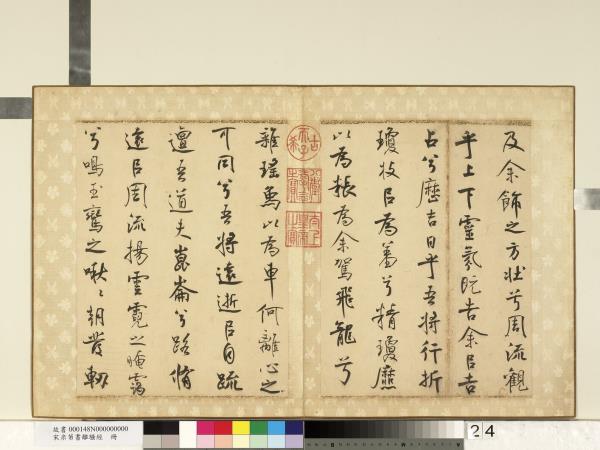 及余飾之方壯兮周流觀
乎上下靈氛既告余㠯吉
占兮歷吉日乎吾將行折
瓊枝㠯為羞兮精瓊爢
以為粻為余駕飛龍兮
古希天子
八徵耄念之寶
太上皇帝之寶
雜瑤象以為車何離心之
可同兮吾將遠逝㠯自疏
邅吾道夫崑崙兮路脩
遠㠯周流揚雲霓之晻藹
兮鳴玉鸞之啾〻朝發軔
故書 000148N000000000
宋米芾書離騷經 冊
24